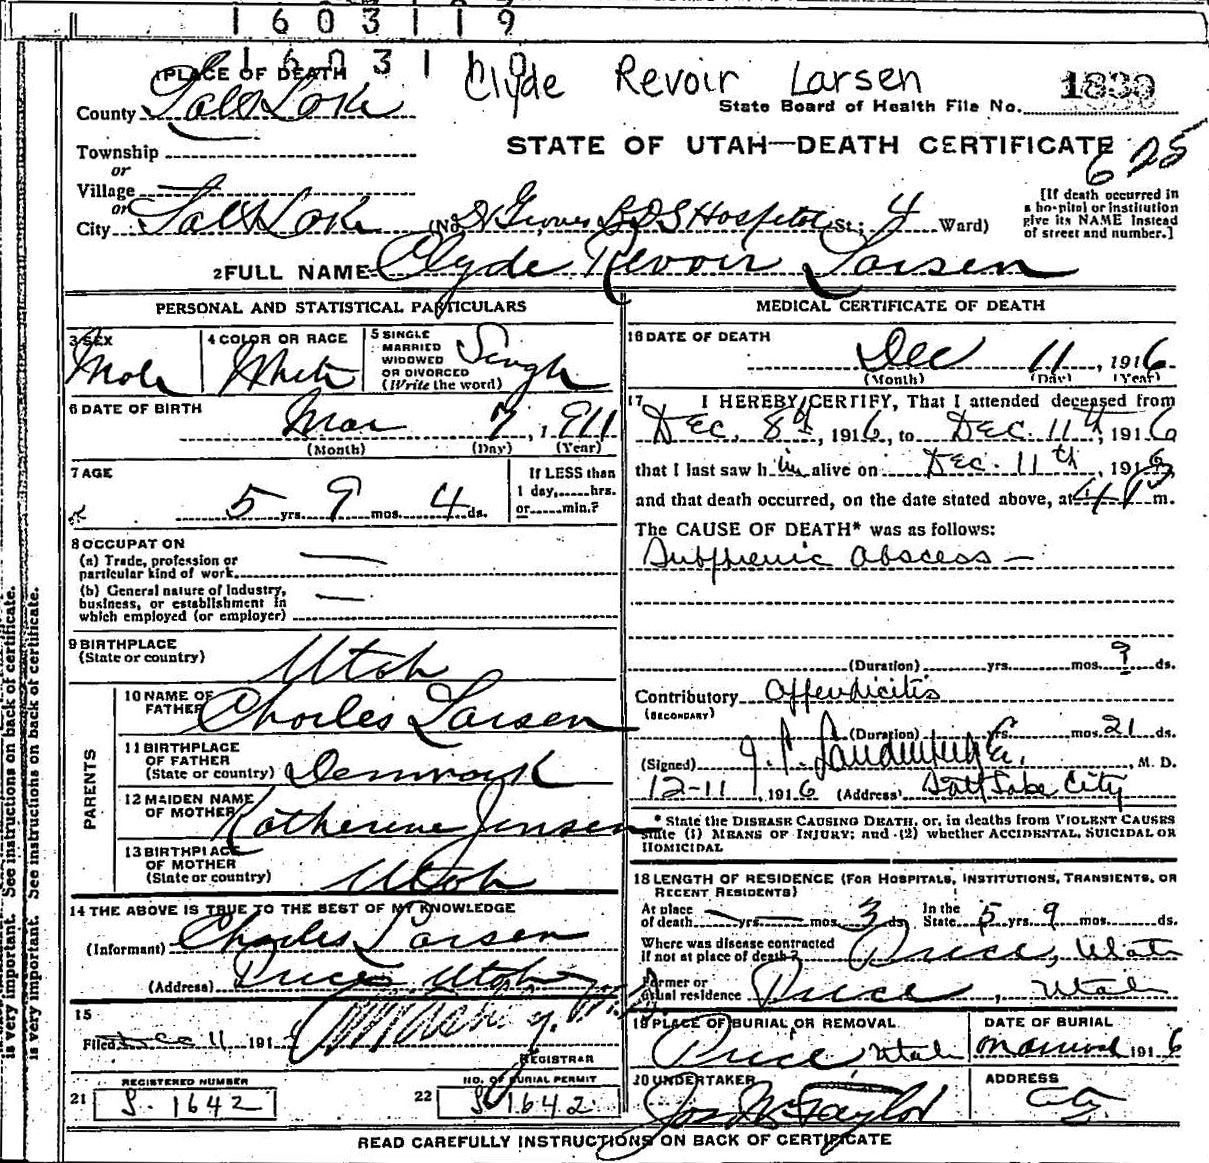 1603119
160311
Clyde Revoir Larsen
1 PLACE OF DEATH
1830
County Salt Lake
State Board of Health File No.
Township
STATE OF UTAH—DEATH CERTIFICATE
or
625
Village
or
City Salt Lake (No. Groves L.D.S Hospital St.; 4 Ward)
[If death occurred in a hospital or institution give its NAME instead of street and number.]
2 FULL NAME Clyde Revoir Larsen
PERSONAL AND STATISTICAL PARTICULARS
3 SEX Male
4 COLOR OR RACE White
5 SINGLE MARRIED WIDOWED OR DIVORCED (Write the word) Single
6 DATE OF BIRTH
Mar 7, 1911
(Month) (Day) (Year)
7 AGE
5 yrs. 9 mos. 4 ds.
If LESS than 1 day,......hrs. or......min.?
8 OCCUPATON
(a) Trade, profession or
particular kind of work
(b) General nature of industry,
business, or establishment in
which employed (or employer)
9 BIRTHPLACE
(State or country) Utah
PARENTS
10 NAME OF FATHER Charles Larsen
11 BIRTHPLACE OF FATHER (State or country) Denmark
12 MAIDEN NAME OF MOTHER Katherine Jensen
13 BIRTHPLACE OF MOTHER (State or country) Utah
14 THE ABOVE IS TRUE TO THE BEST OF MY KNOWLEDGE
(Informant) Charles Larsen
(Address) Price Utah
15
Filed Dec 11 191
REGISTRAR
21 REGISTERED NUMBER S. 1642
22 NO. OF BURIAL PERMIT S 1642
MEDICAL CERTIFICATE OF DEATH
16 DATE OF DEATH
Dec 11, 1916
(Month) (Day) (Year)
17 I HEREBY CERTIFY, That I attended deceased from
Dec. 8th, 1916, to Dec. 11th, 1916
that I last saw him alive on Dec. 11th, 1916
and that death occurred, on the date stated above, at 4 m.
The CAUSE OF DEATH* was as follows:
Subphrenic Abscess —
(Duration) yrs. mos. ? ds.
Contributory Appendicitis
(SECONDARY)
(Duration) mos. 21 ds.
(Signed) M. D.
12-11, 1916 (Address) Salt Lake City
* State the DISEASE CAUSING DEATH, or, in deaths from VIOLENT CAUSES
state (1) MEANS OF INJURY; and (2) whether ACCIDENTAL, SUICIDAL OR
HOMICIDAL
18 LENGTH OF RESIDENCE (FOR HOSPITALS, INSTITUTIONS, TRANSIENTS, OR
RECENT RESIDENTS)
At place of death yrs. mos. 3 ds. In the State 5 yrs. 9 mos. ds.
Where was disease contracted
If not at place of death? Price, Utah
Former or
usual residence Price, Utah
19 PLACE OF BURIAL OR REMOVAL Price, Utah
DATE OF BURIAL 1916
20 UNDERTAKER Jos Wm Taylor
ADDRESS City
READ CAREFULLY INSTRUCTIONS ON BACK OF CERTIFICATE
is very important. See instructions on back of certificate.
is very important. See instructions on back of certificate.